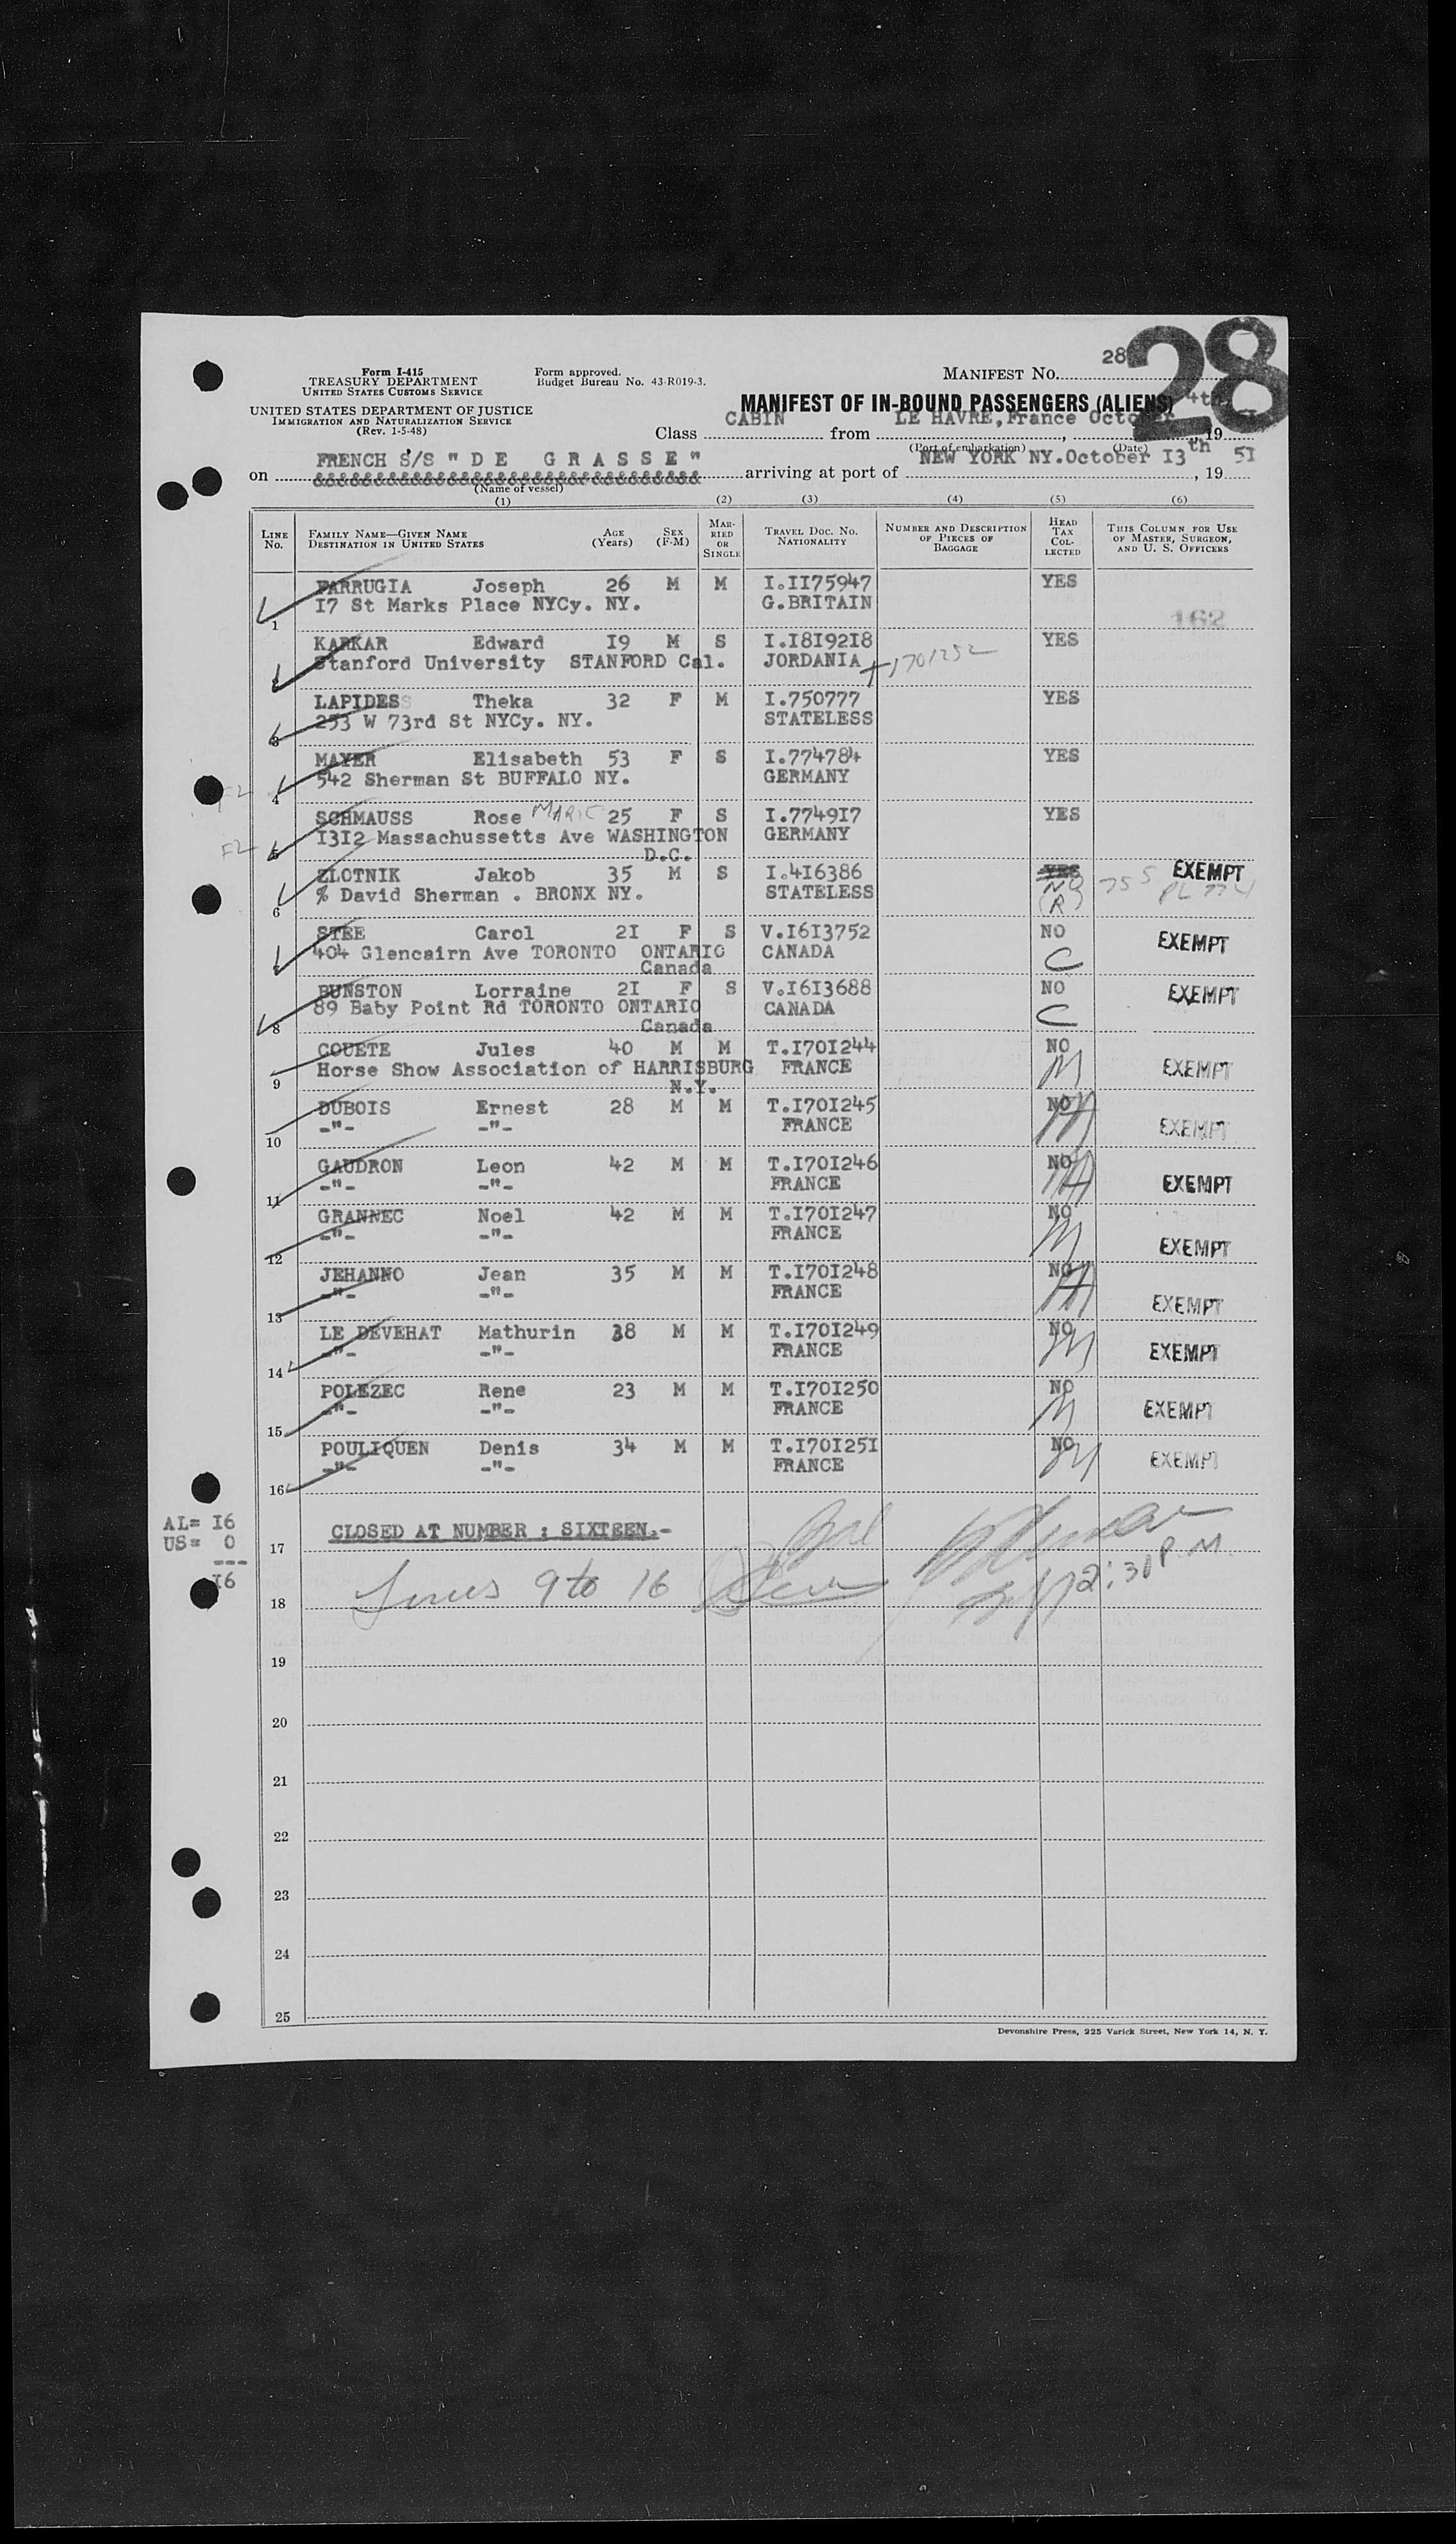 Form I-415
TREASURY DEPARTMENT
UNITED STATES CUSTOMS SERVICE
UNITED STATES DEPARTMENT OF JUSTICE
IMMIGRATION AND NATURALIZATION SERVICE
(Rev. 1-5-48)
Form approved.
Budget Bureau No. 43-R019-3.
MANIFEST No. 28
28
MANIFEST OF IN-BOUND PASSENGERS (ALIENS)
Class CABIN from LE HAVRE, France October 4th, 19
(Port of embarkation) (Date)
on FRENCH S/S " D E G R A S S E " arriving at port of NEW YORK NY. October I3th, 19 5I
(Name of vessel)
(1) (2) (3) (4) (5) (6)
LINE No. FAMILY NAME—GIVEN NAME DESTINATION IN UNITED STATES AGE (Years) SEX (F-M) MARRIED OR SINGLE TRAVEL DOC. No. NATIONALITY NUMBER AND DESCRIPTION OF PIECES OF BAGGAGE HEAD TAX COLLECTED THIS COLUMN FOR USE OF MASTER, SURGEON, AND U. S. OFFICERS
FARRUGIA Joseph 26 M M I.II75947 YES
I7 St Marks Place NYCy. NY. G.BRITAIN
1 162
KARKAR Edward I9 M S I.I8I92I8 YES
Stanford University STANFORD Cal. JORDANIA +1701252
LAPIDESS Theka 32 F M I.750777 YES
253 W 73rd St NYCy. NY. STATELESS
3
MAYER Elisabeth 53 F S I.774784 YES
542 Sherman St BUFFALO NY. GERMANY
F2 4
SCHMAUSS Rose MARIE 25 F S I.7749I7 YES
I3I2 Massachussetts Ave WASHINGTON GERMANY
F2 5 D.C.
ZLOTNIK Jakob 35 M S I.4I6386 YES EXEMPT
% David Sherman . BRONX NY. STATELESS NO 755 PL 774
6 (R)
STEE Carol 2I F S V.I6I3752 NO EXEMPT
404 Glencairn Ave TORONTO ONTARIO CANADA C
Canada
BUNSTON Lorraine 2I F S V.I6I3688 NO EXEMPT
89 Baby Point Rd TORONTO ONTARIO CANADA C
8 Canada
COUETE Jules 40 M M T.I70I244 NO
Horse Show Association of HARRISBURG FRANCE EXEMPT
9 N.Y.
DUBOIS Ernest 28 M M T.I70I245 NO
-"- -"- FRANCE EXEMPT
10
GAUDRON Leon 42 M M T.I70I246 NO
-"- -"- FRANCE EXEMPT
11
GRANNEC Noel 42 M M T.I70I247 NO
-"- -"- FRANCE EXEMPT
12
JEHANNO Jean 35 M M T.I70I248 NO
-"- -"- FRANCE EXEMPT
13
LE DEVEHAT Mathurin 38 M M T.I70I249 NO
-"- -"- FRANCE EXEMPT
14
POLEZEC Rene 23 M M T.I70I250 NO
-"- -"- FRANCE EXEMPT
15
POULIQUEN Denis 34 M M T.I70I25I NO
-"- -"- FRANCE EXEMPT
16
AL= I6
US= 0
---
I6
CLOSED AT NUMBER : SIXTEEN.-
17
Lines 9 to 16 2:30 P.M.
18
19
20
21
22
23
24
25
Devonshire Press, 225 Varick Street, New York 14, N. Y.